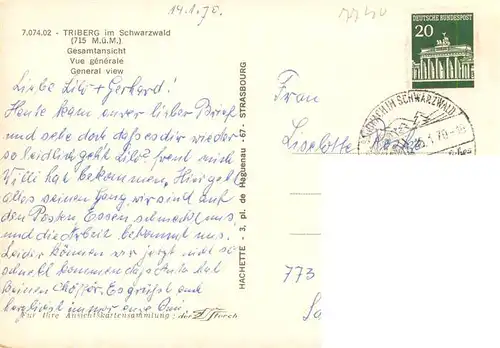 14.1.70.
7.074.02 - TRIBERG im Schwarzwald
(715 M.ü.M.)
Gesamtansicht
Vue générale
General view
DEUTSCHE BUNDESPOST
20
SCHWARZWALD
Liebe Lilo + Gerhard!
Heute kam unser lieber Brief
und sehe doch daß es dir wieder
so leidlich geht Lilo? freut mich
hat bekommen, Hier geht
alles seinen Gang, wir sind auf
den Posten Essen schmeckt uns
und die Arbeit bekommt uns.
Leider können wir jetzt nicht so
schnell kommen da's Auto hat
keinen Chöfför. Es grüßt und
herzlichst immer eure
Für Ihre Ansichtskartensammlung: der Storch
HACHETTE - 3, pl. de Haguenau - 67 - STRASBOURG
Frau
Liselotte
773